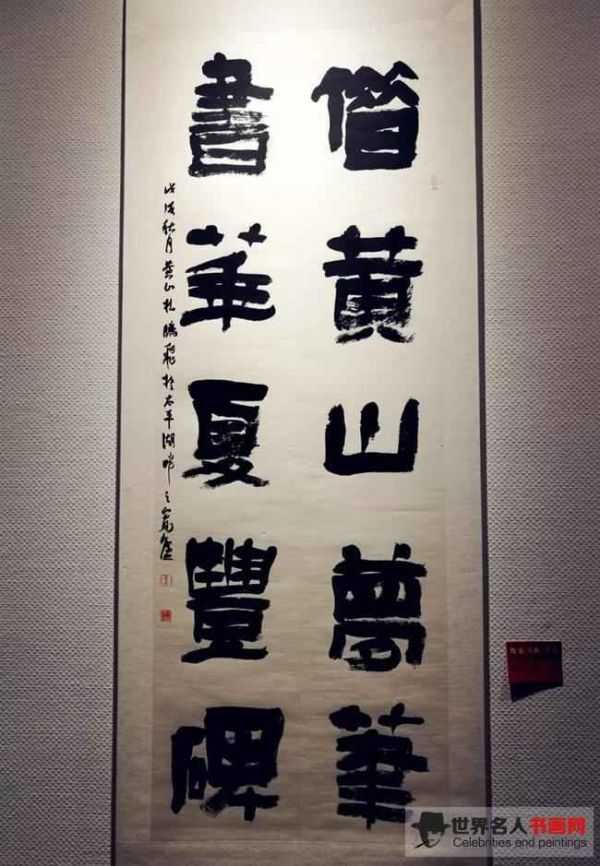 借黄山夢筆
書華夏豐碑
戊戌秋月黄山杜鵬飛於太平湖畔之寬廬
世界名人书画网
Celebrities and paintings